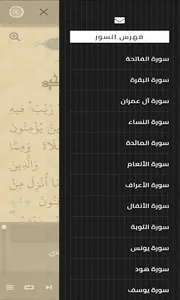 فهرس السور
سورة الفاتحة
سورة البقرة
سورة آل عمران
سورة النساء
سورة المائدة
سورة الأنعام
سورة الأعراف
سورة الأنفال
سورة التوبة
سورة يونس
سورة هود
سورة يوسف
رَيْبَ فِيهِ
يُؤْمِنُونَ
وَالَّذِينَ
أُنْزِلَ مِنْ